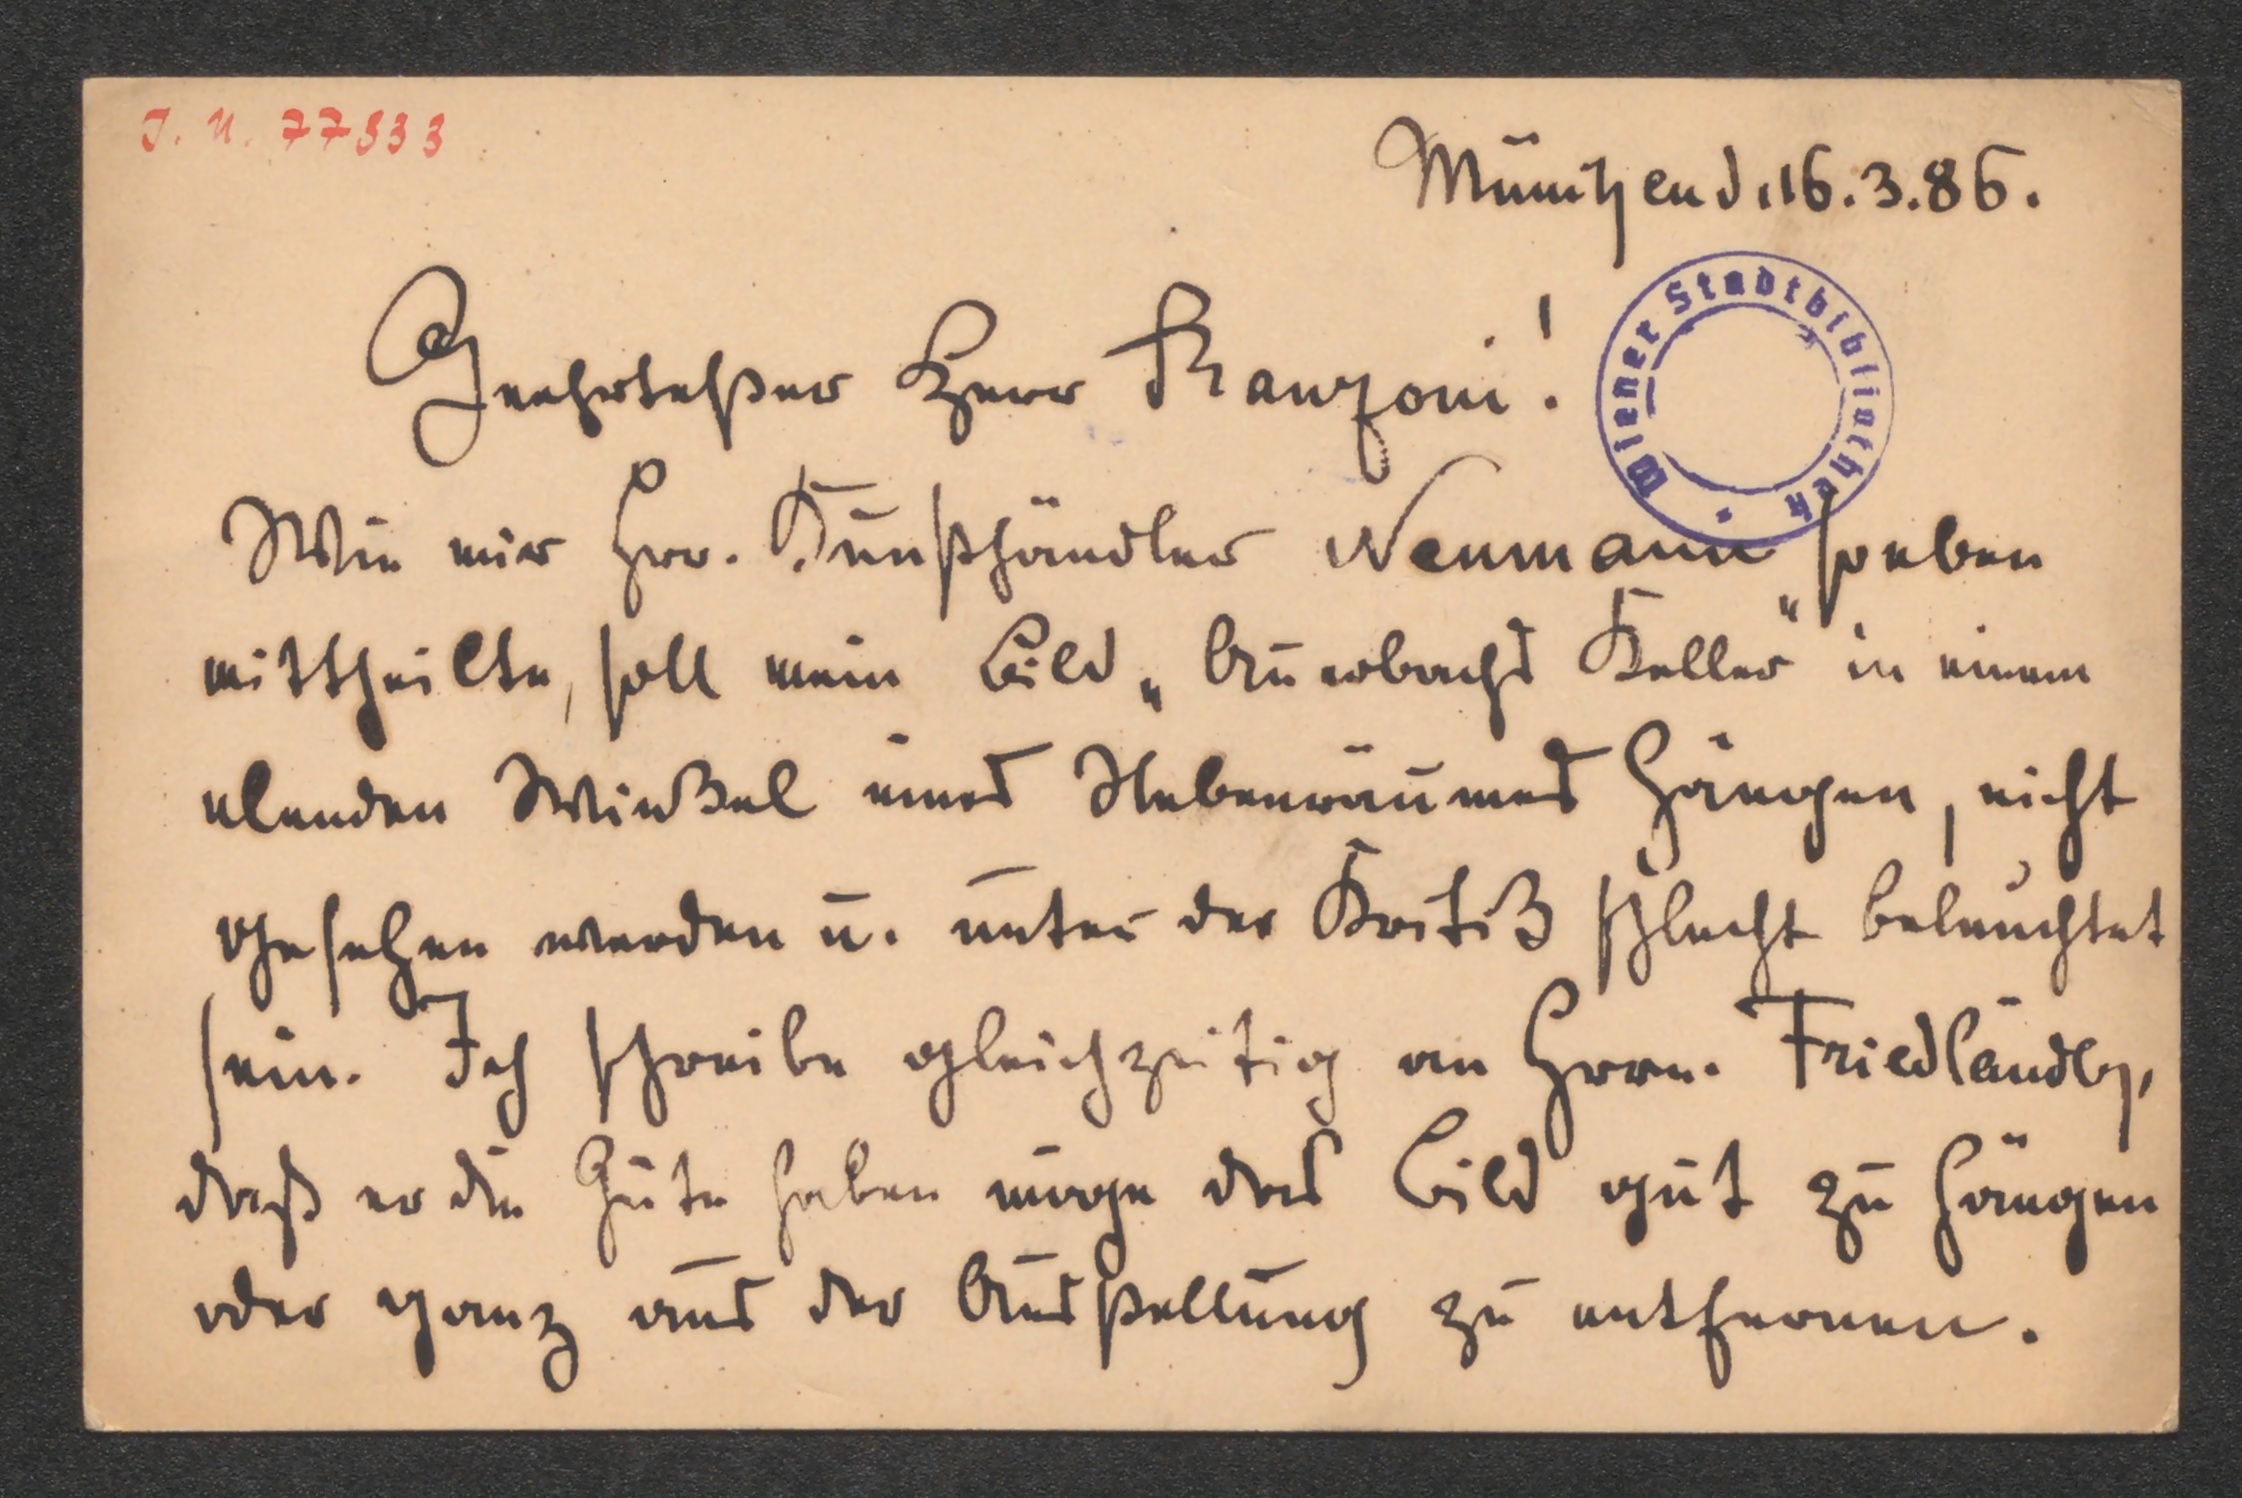 J. N. 77533
München d. 16. 3. 86.
Wiener Stadtbibliothek
Geehrtester Herr Ranzoni!
Wie mir Hrr. Kunsthändler Neumann soeben
mittheilte, soll mein Bild „Auerbachs Keller“ in einem
elenden Winkel eines Nebenraumes hängen, nicht
gesehen werden u. unter der Kritik schlecht beleuchtet
sein. Ich schreibe gleichzeitig an Hrrn. Friedländer,
daß er die Güte haben möge das Bild gut zu hängen
oder ganz aus der Ausstellung zu entfernen.